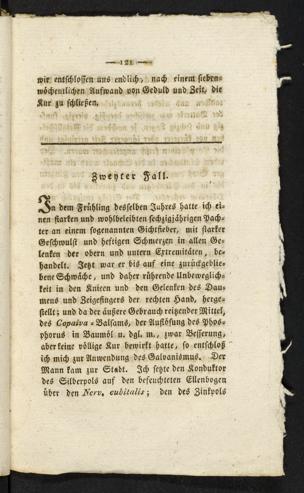 — 121 —
wir entschlossen uns endlich, nach einem sieben-
wöchentlichen Aufwand von Geduld und Zeit, die
Kur zu schließen.
Zweyter Fall.
In dem Frühling desselben Jahres hatte ich ei-
nen starken und wohlbeleibten sechzigjährigen Pach-
ter an einem sogenannten Gichtfieber, mit starker
Geschwulst und heftigen Schmerzen in allen Ge-
lenken der obern und untern Extremitäten, be-
handelt. Jetzt war er bis auf eine zurückgeblie-
bene Schwäche, und daher rührende Unbeweglich-
keit in den Knieen und den Gelenken des Dau-
mens und Zeigefingers der rechten Hand, herge-
stellt; und da der äußere Gebrauch reitzender Mittel,
des Copaiva-Balsams, der Auflösung des Phos-
phorus in Baumöl u. dgl. m., zwar Besserung,
aber keine völlige Kur bewirkt hatte, so entschloß
ich mich zur Anwendung des Galvanismus. Der
Mann kam zur Stadt. Ich setzte den Konduktor
des Silberpols auf den befeuchteten Ellenbogen
über den Nerv. cubitalis; den des Zinkpols